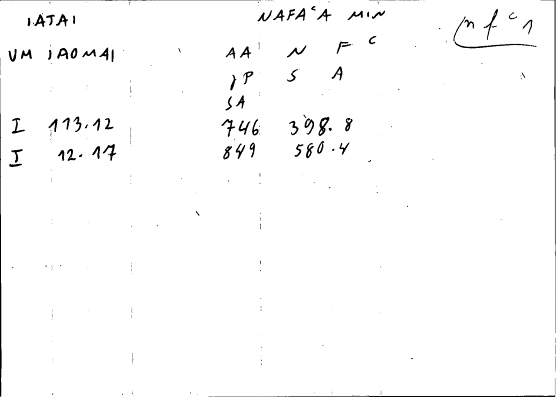 IATAI NAFAᶜA MIN nfᶜ1
VM iAOMAI AA N F C
jP S A
SA
I 113.12 746 398.8
I 12.17 849 580.4